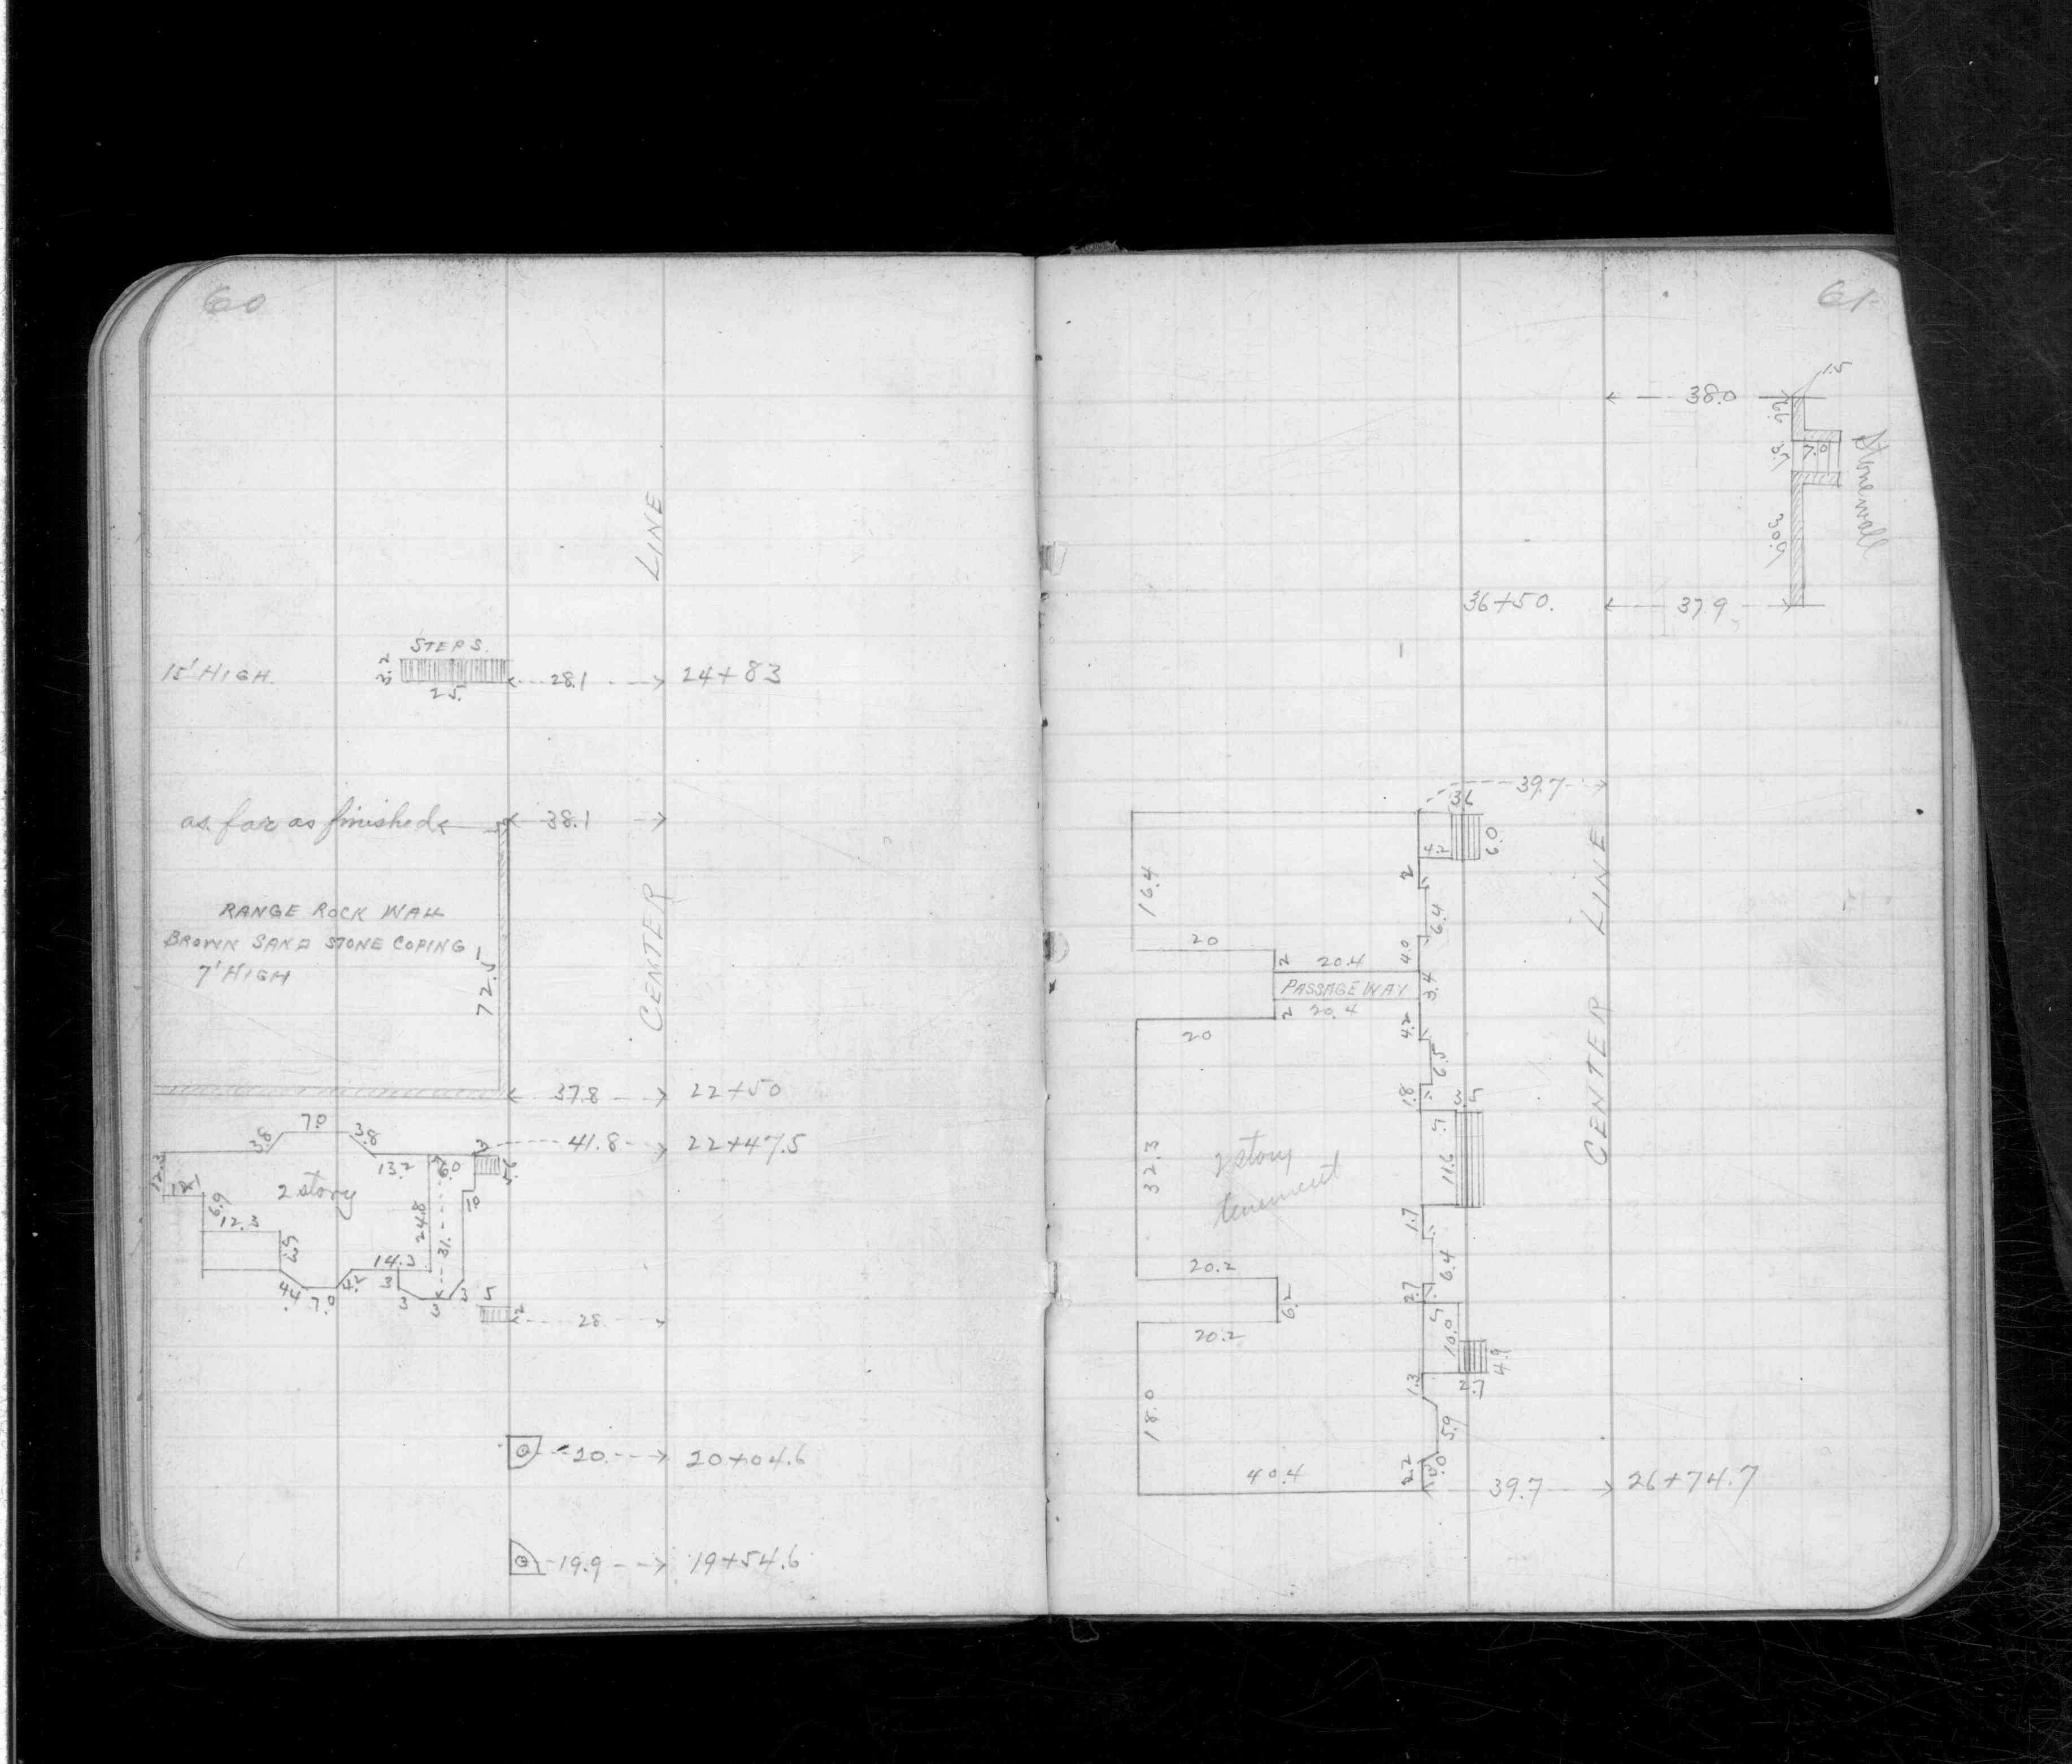 60
LINE
STEPS.
15' HIGH.
3.2
25.
28.1
24+83
as far as finished
38.1
RANGE ROCK WALL
BROWN SAND STONE COPING
7' HIGH
72.5'
CENTER
37.8
22+50
70
3.8
3.8
3
41.8
22+47.5
12.3
13.2
6.0
5.6
12.1
2 story
10
6.9
12.3
24.8
31.
6.9
14.3
4.4
7.0
4.2
3
3
3
3
5
2
28
20.
20+04.6
19.9
19+54.6
61
1.5
38.0
7.0
Stonewall
30.9
36+50.
37.9
39.7
3.6
4.2
6.0
2
16.4
6.4
20
2
20.4
4.0
PASSAGE WAY
3.4
2
20.4
4.2
20
6.5
1.8
3.5
32.3
2 story
tenement
11.6
1.7
6.4
20.2
2.7
6.2
20.2
10.0
4.9
2.7
1.3
18.0
5.9
2.2
3.0
40.4
39.7
26+74.7
CENTER LINE